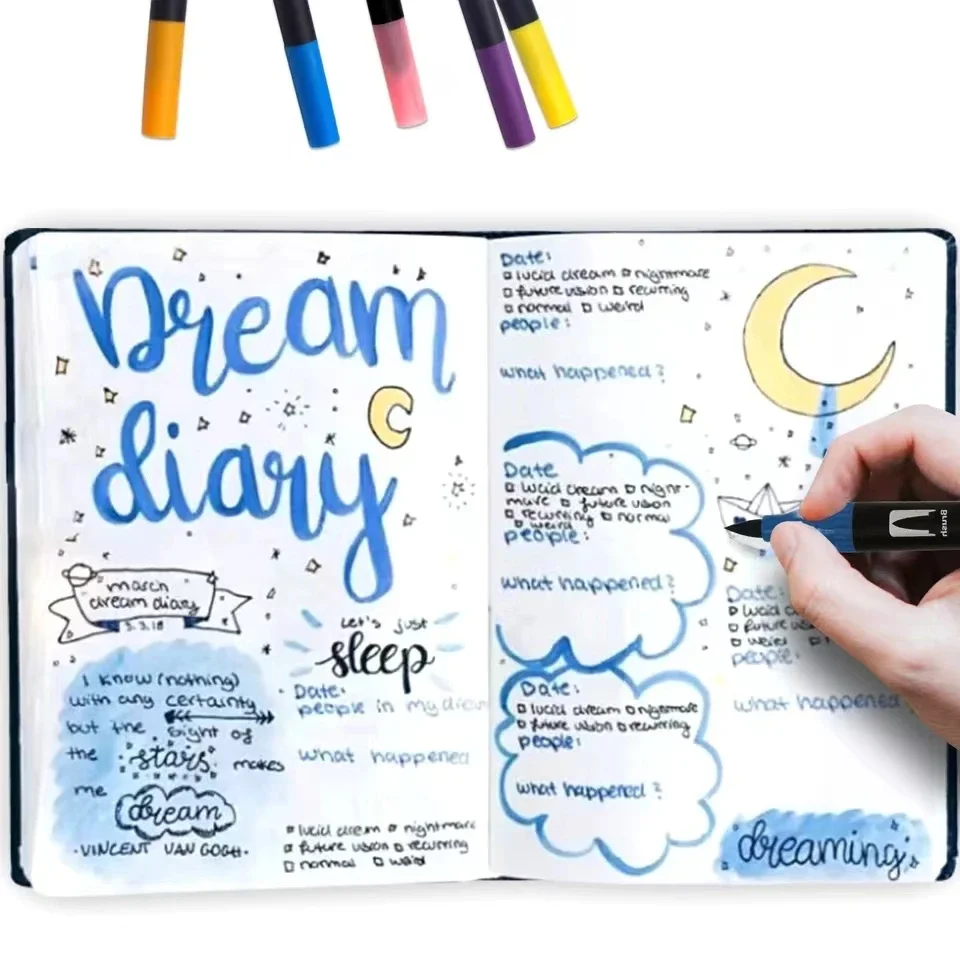 Dream
diary
march
dream diary
3.3.18
Let's just
sleep
I know (nothing)
with any certainty
but the sight of
the stars makes
me
dream
·VINCENT VAN GOGH·
Date:
people in my
what happened
lucid dream nightmare
future vision recurring
normal weird
Date:
lucid dream nightmare
future vision recurring
normal weird
people:
what happened?
Date
lucid dream night-
mare future vision
recurring normal
weird
people:
what happened?
Date:
lucid dream nightmare
future vision recurring
people:
what happened?
Date:
lucid
future
weird
people:
what happened
dreaming
Brush